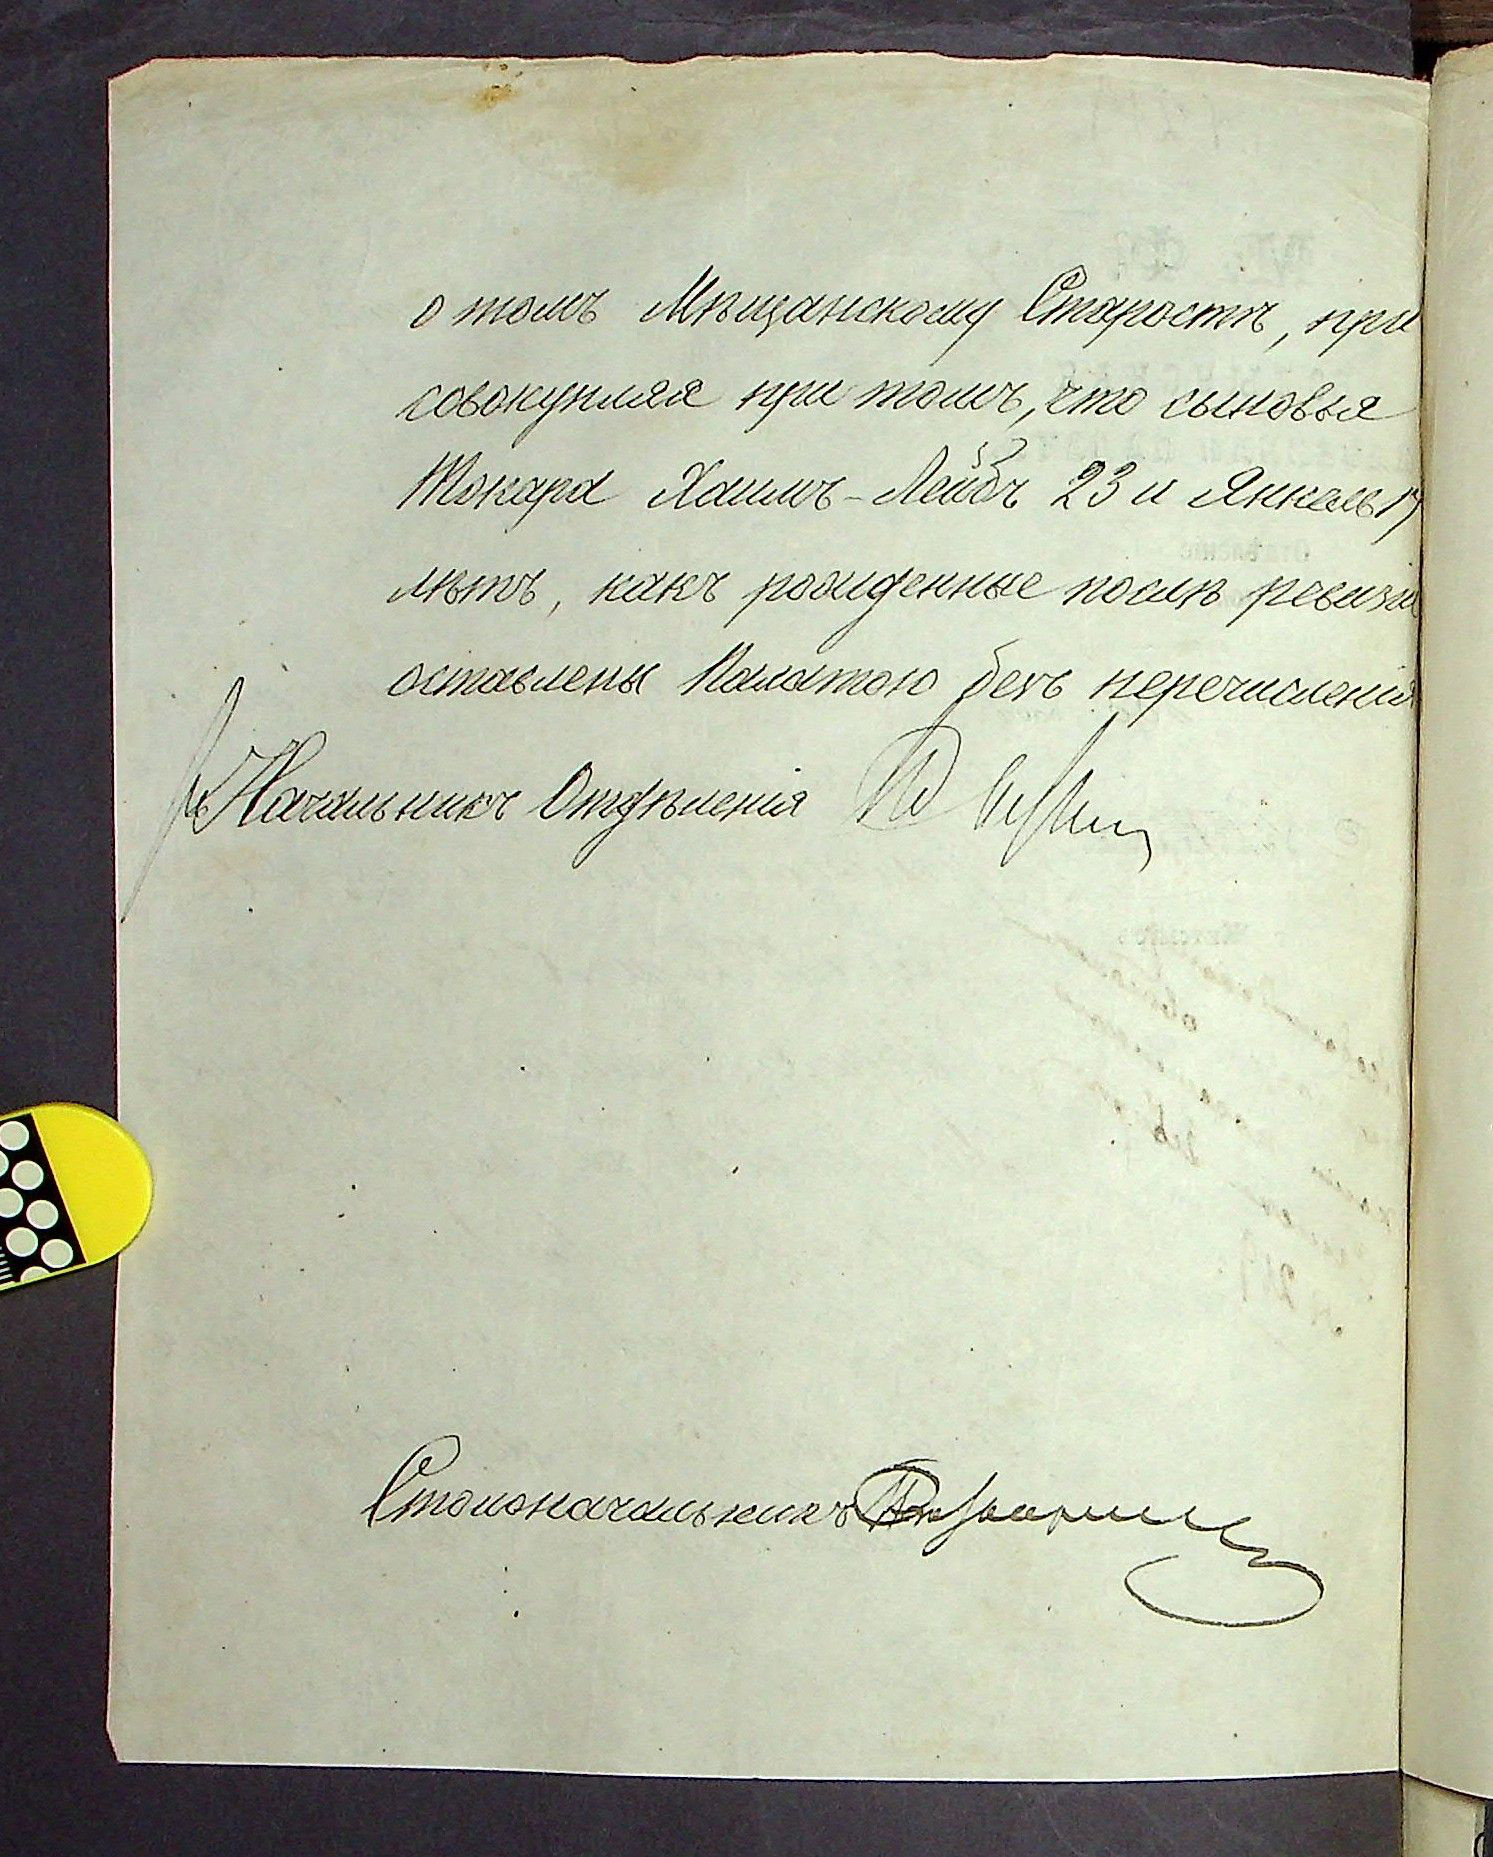 о томъ Мѣщанскому Старостѣ, при
совокупляя при томъ, что сыновья
Токаря Хаимъ-Лейбъ 23 и Янкель 17
лѣтъ, какъ рожденные послѣ ревизіи
оставлены Палатою безъ перечисленія
Начальникъ Отдѣленія
Столоначальникъ